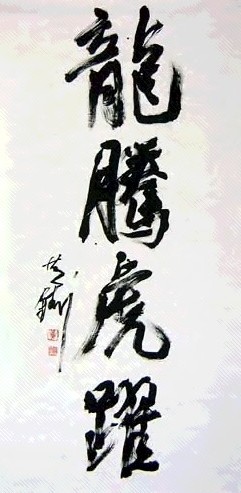 龍騰虎躍